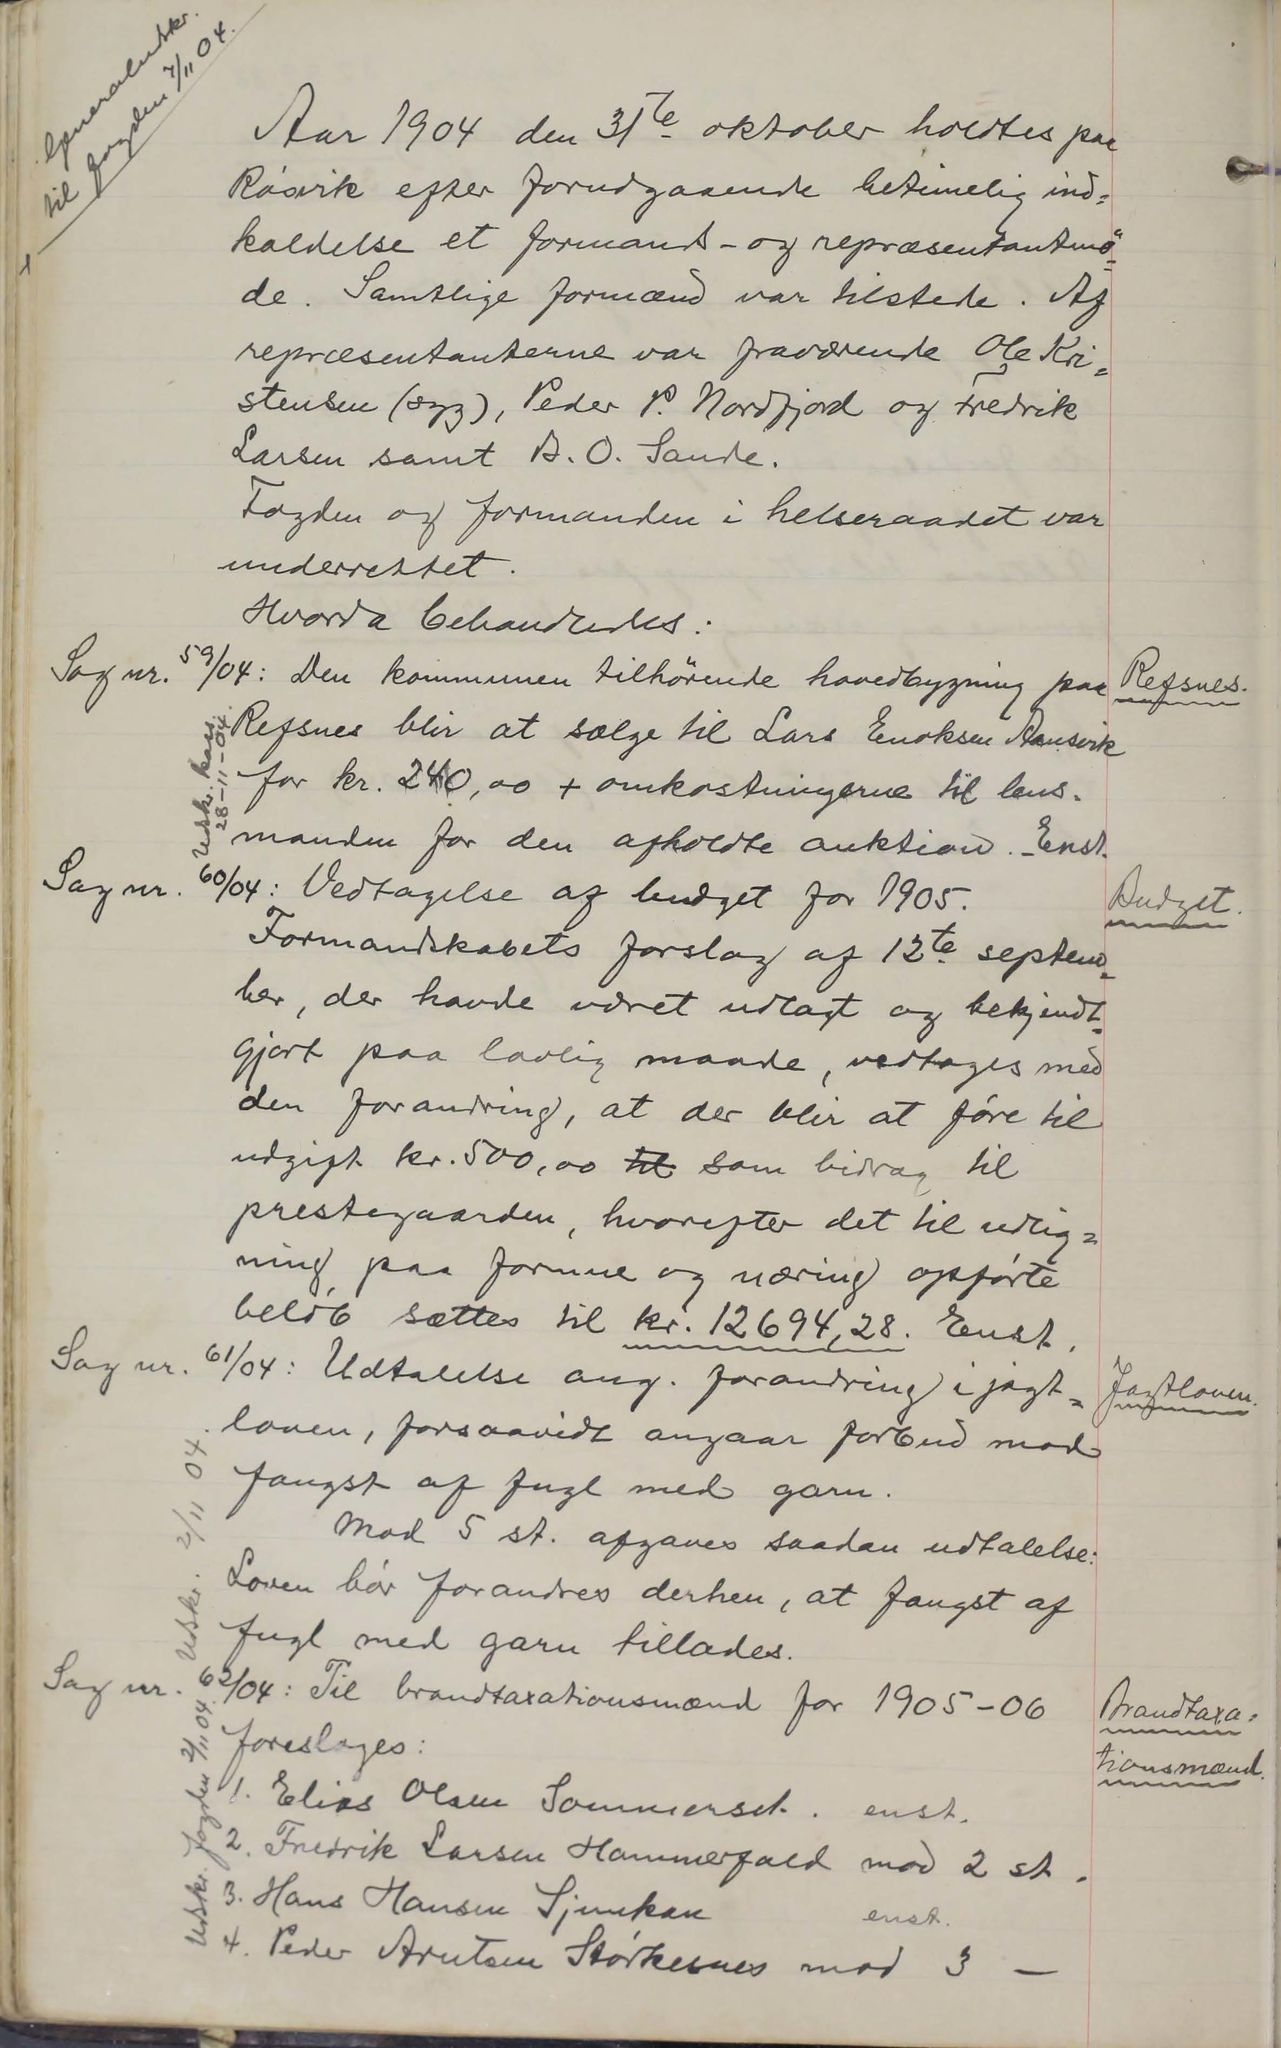 Generaludskr.
til fogden 7/11 04.
Aar 1904 den 31te oktober holdtes paa
Rösvik efter forudgaaende betimelig ind=
kaldelse et formands- og repræsentantmö=
de. Samtlige formænd var tilstede. Af
repræsentanterne var fraværende Ole Kri=
stensen (syg), Peder P. Nordfjord og Fredrik
Larsen samt A. O. Sande.
Fogden og formanden i helseraadet var
underrettet.
Hvorda behandledes:
Sag nr. 59/04: Den kommunen tilhörende hovedbygning paa
Refsnes.
Refsnes blir at sælge til Lars Enoksen Aansvik
for kr. 240,00 + omkostningerne til lens=
manden for den afholdte auktion. - Enst.
Udskr. kass. 28-11-04.
Sag nr. 60/04: Vedtagelse af budget for 1905.
Budget.
Formandskabets forslag af 12te septem=
ber, der havde været udlagt og bekjendt=
gjort paa lovlig maade, vedtages med
den forandring, at der blir at före til
udgift kr. 500,00 til som bidrag til
prestegaarden, hvorefter det til udlig=
ning paa formue og næring opförte
belöb sættes til kr. 12694,28. Enst.
Sag nr. 61/04: Udtalelse ang. forandring i jagt=
Jagtloven.
loven, forsaavidt angaar forbud mod
fangst af fugl med garn.
Mod 5 st. afgaves saadan udtalelse:
Loven bör forandres derhen, at fangst af
fugl med garn tillades.
Udskr. 2/11 04.
Sag nr. 62/04: Til brandtaxationsmænd for 1905-06
Brandtaxa=
tionsmænd.
foreslages:
1. Elias Olsen Sommerset. enst.
2. Fredrik Larsen Hammerfald mod 2 st.
3. Hans Hansen Sjunkan enst.
4. Peder Arntsen Störkesnes mod 3 —
Udskr. fogden 2/11 04.